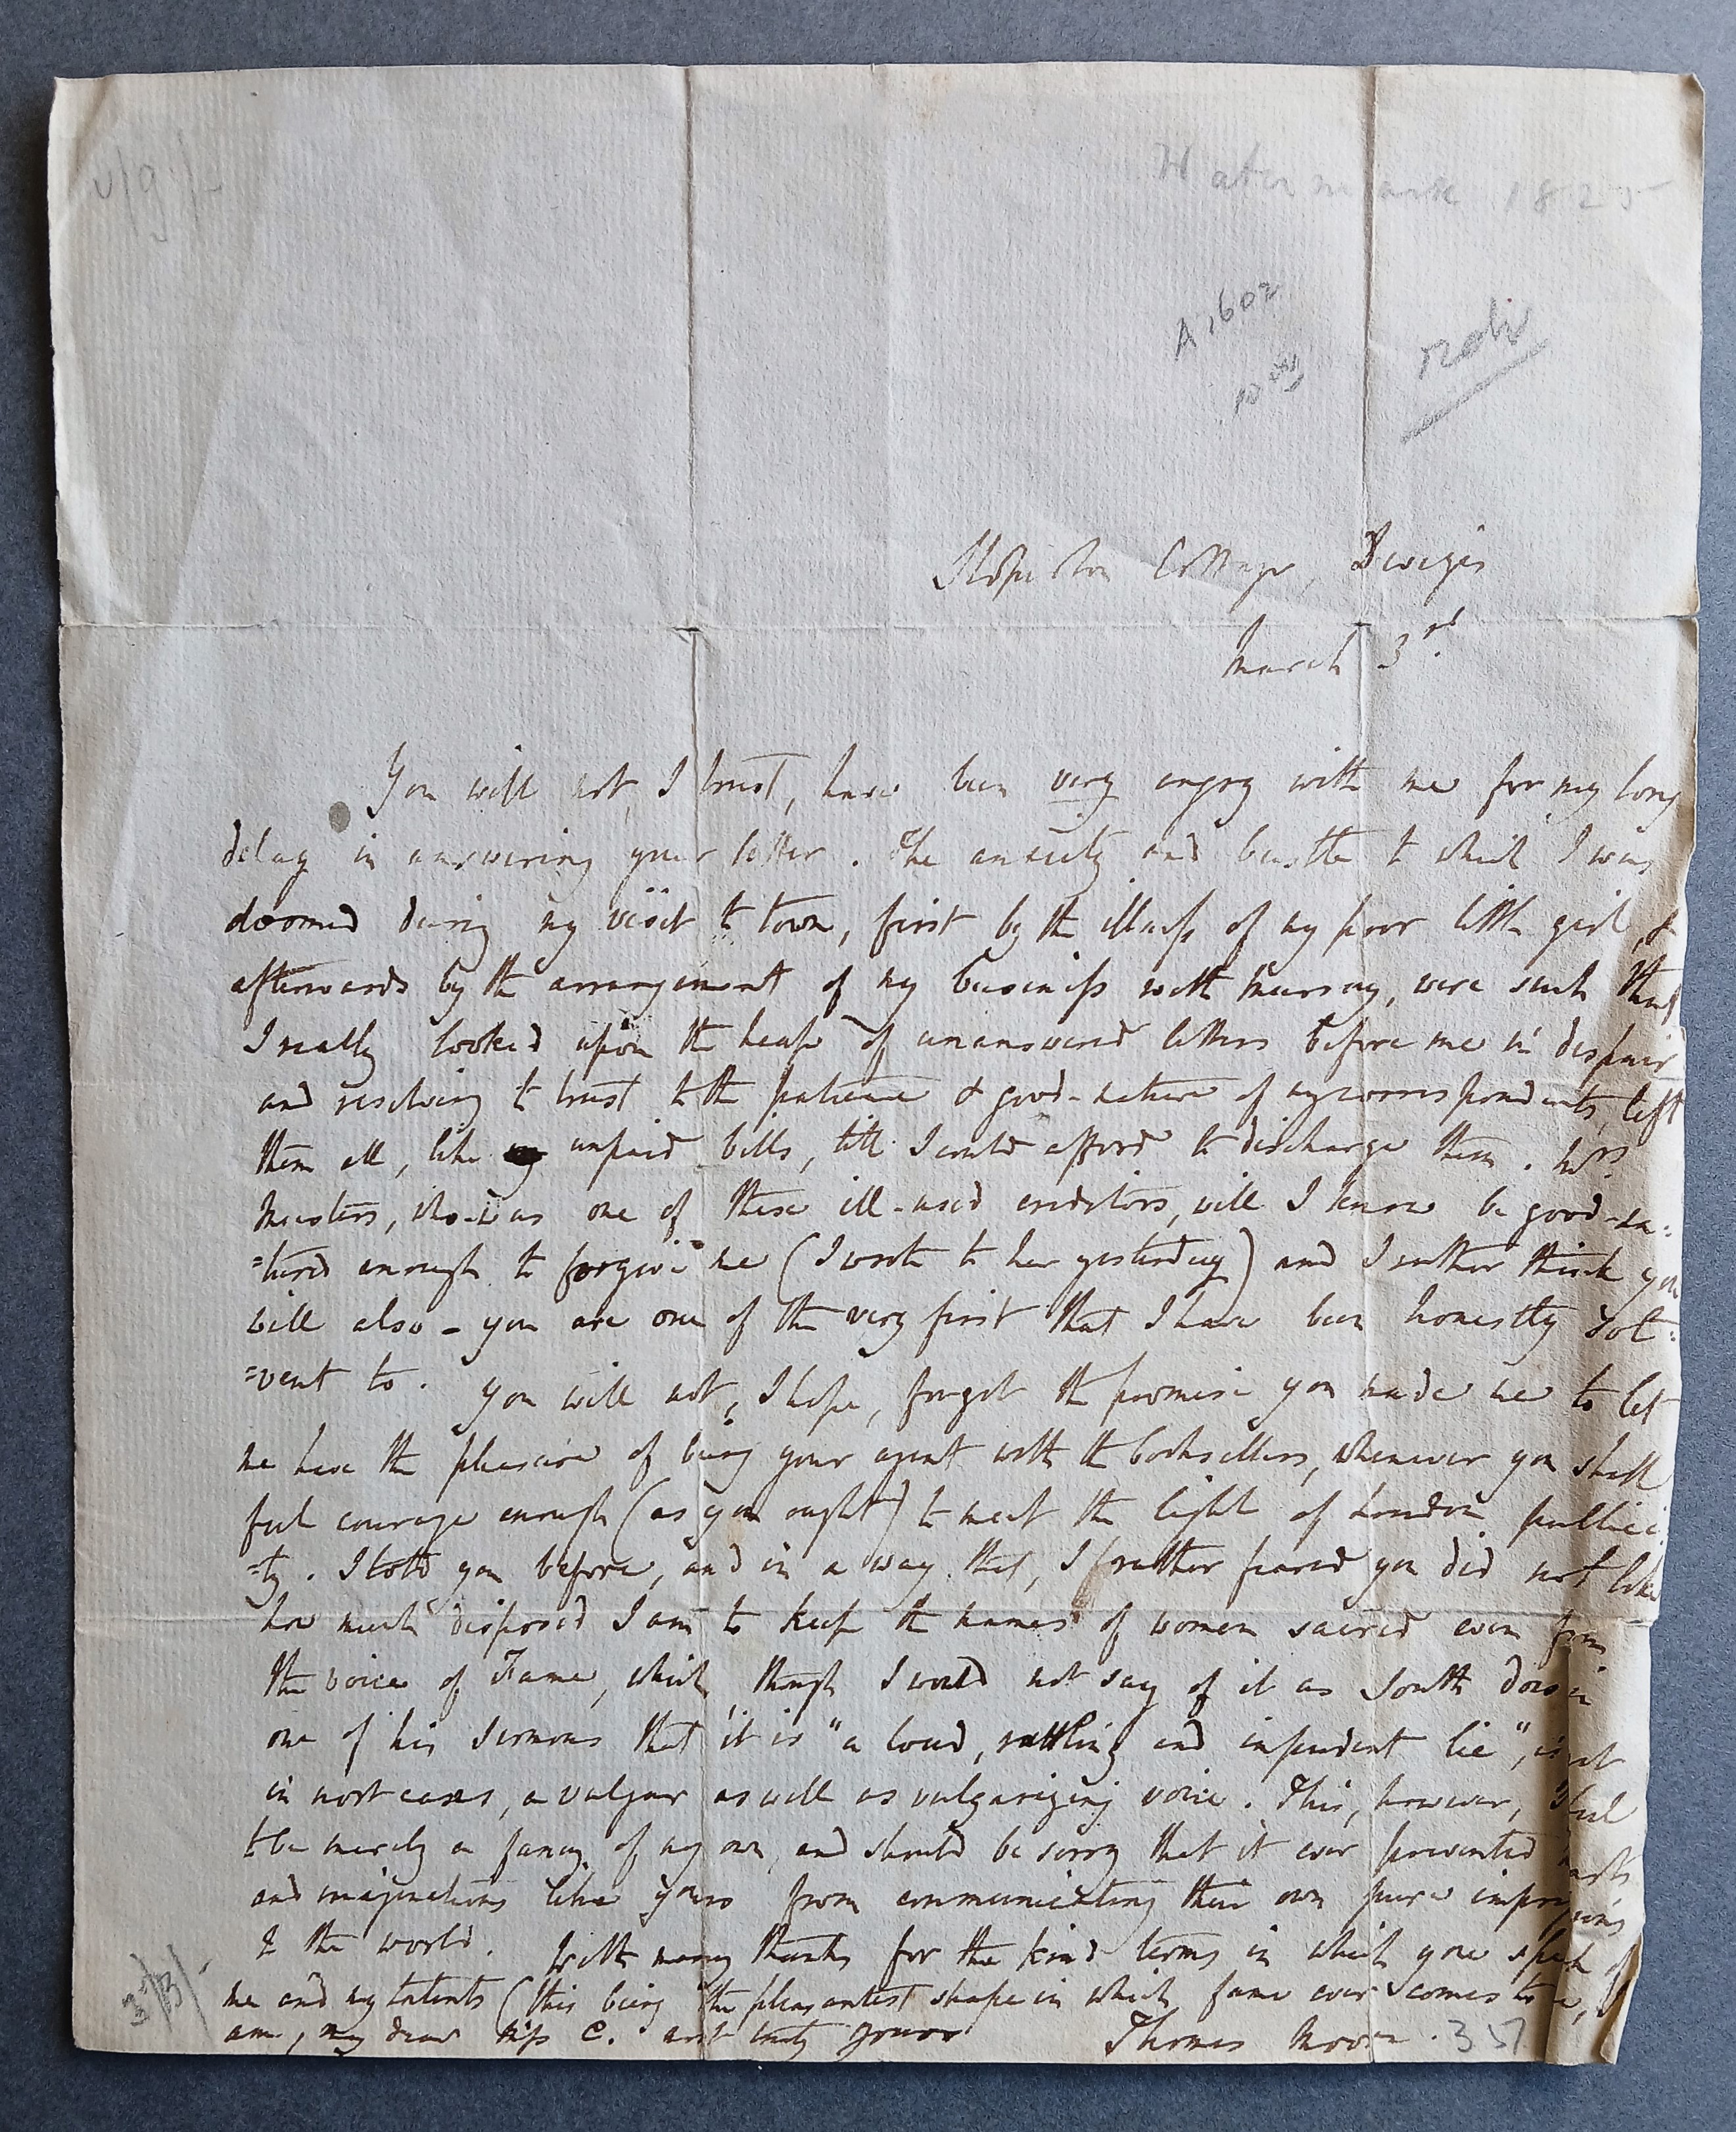 Watermark 1825
A 1602
Sloperton Cottage, Devizes
March 3rd
You will not, I trust, have been very angry with me for my long
delay in answering your letter. The anxiety and bustle to which I was
doomed during my visit to town, first by the illness of my poor little girl, &
afterwards by the arrangement of my business with Murray, were such that
I really looked upon the heap of unanswered letters before me in despair
and resolving to trust to the patience & good-nature of my correspondents, left
them all, like unpaid bills, till I could afford to discharge them. Mrs
Masters, who was one of these ill-used creditors, will I know be good-na:
=tured enough to forgive me (I wrote to her yesterday) and I rather think you
will also - you are one of the very first that I have been honestly sol:
=vent to. You will not, I hope, forget the promise you made me to let
me have the pleasure of being your agent with the booksellers, whenever you shall
feel courage enough (as you ought) to meet the light of London publici:
=ty. I told you before, and in a way that, I rather feared you did not like
how much disposed I am to keep the names of women sacred even from
the voice of Fame, which, though I would not say of it as South does in
one of his sermons that it is "a loud, rattling and impudent lie", is at
in most cases, a vulgar as well as vulgarizing voice. This, however, I feel
to be merely a fancy of my own, and should be sorry that it ever prevented hearts
and imaginations like yours from communicating their own pure
to the world. With many thanks for the kind terms in which you speak of
me and my talents (this being the pleasantest shape in which fame ever comes to me,
am, my dear Miss C. most truly yours Thomas Moore. 357